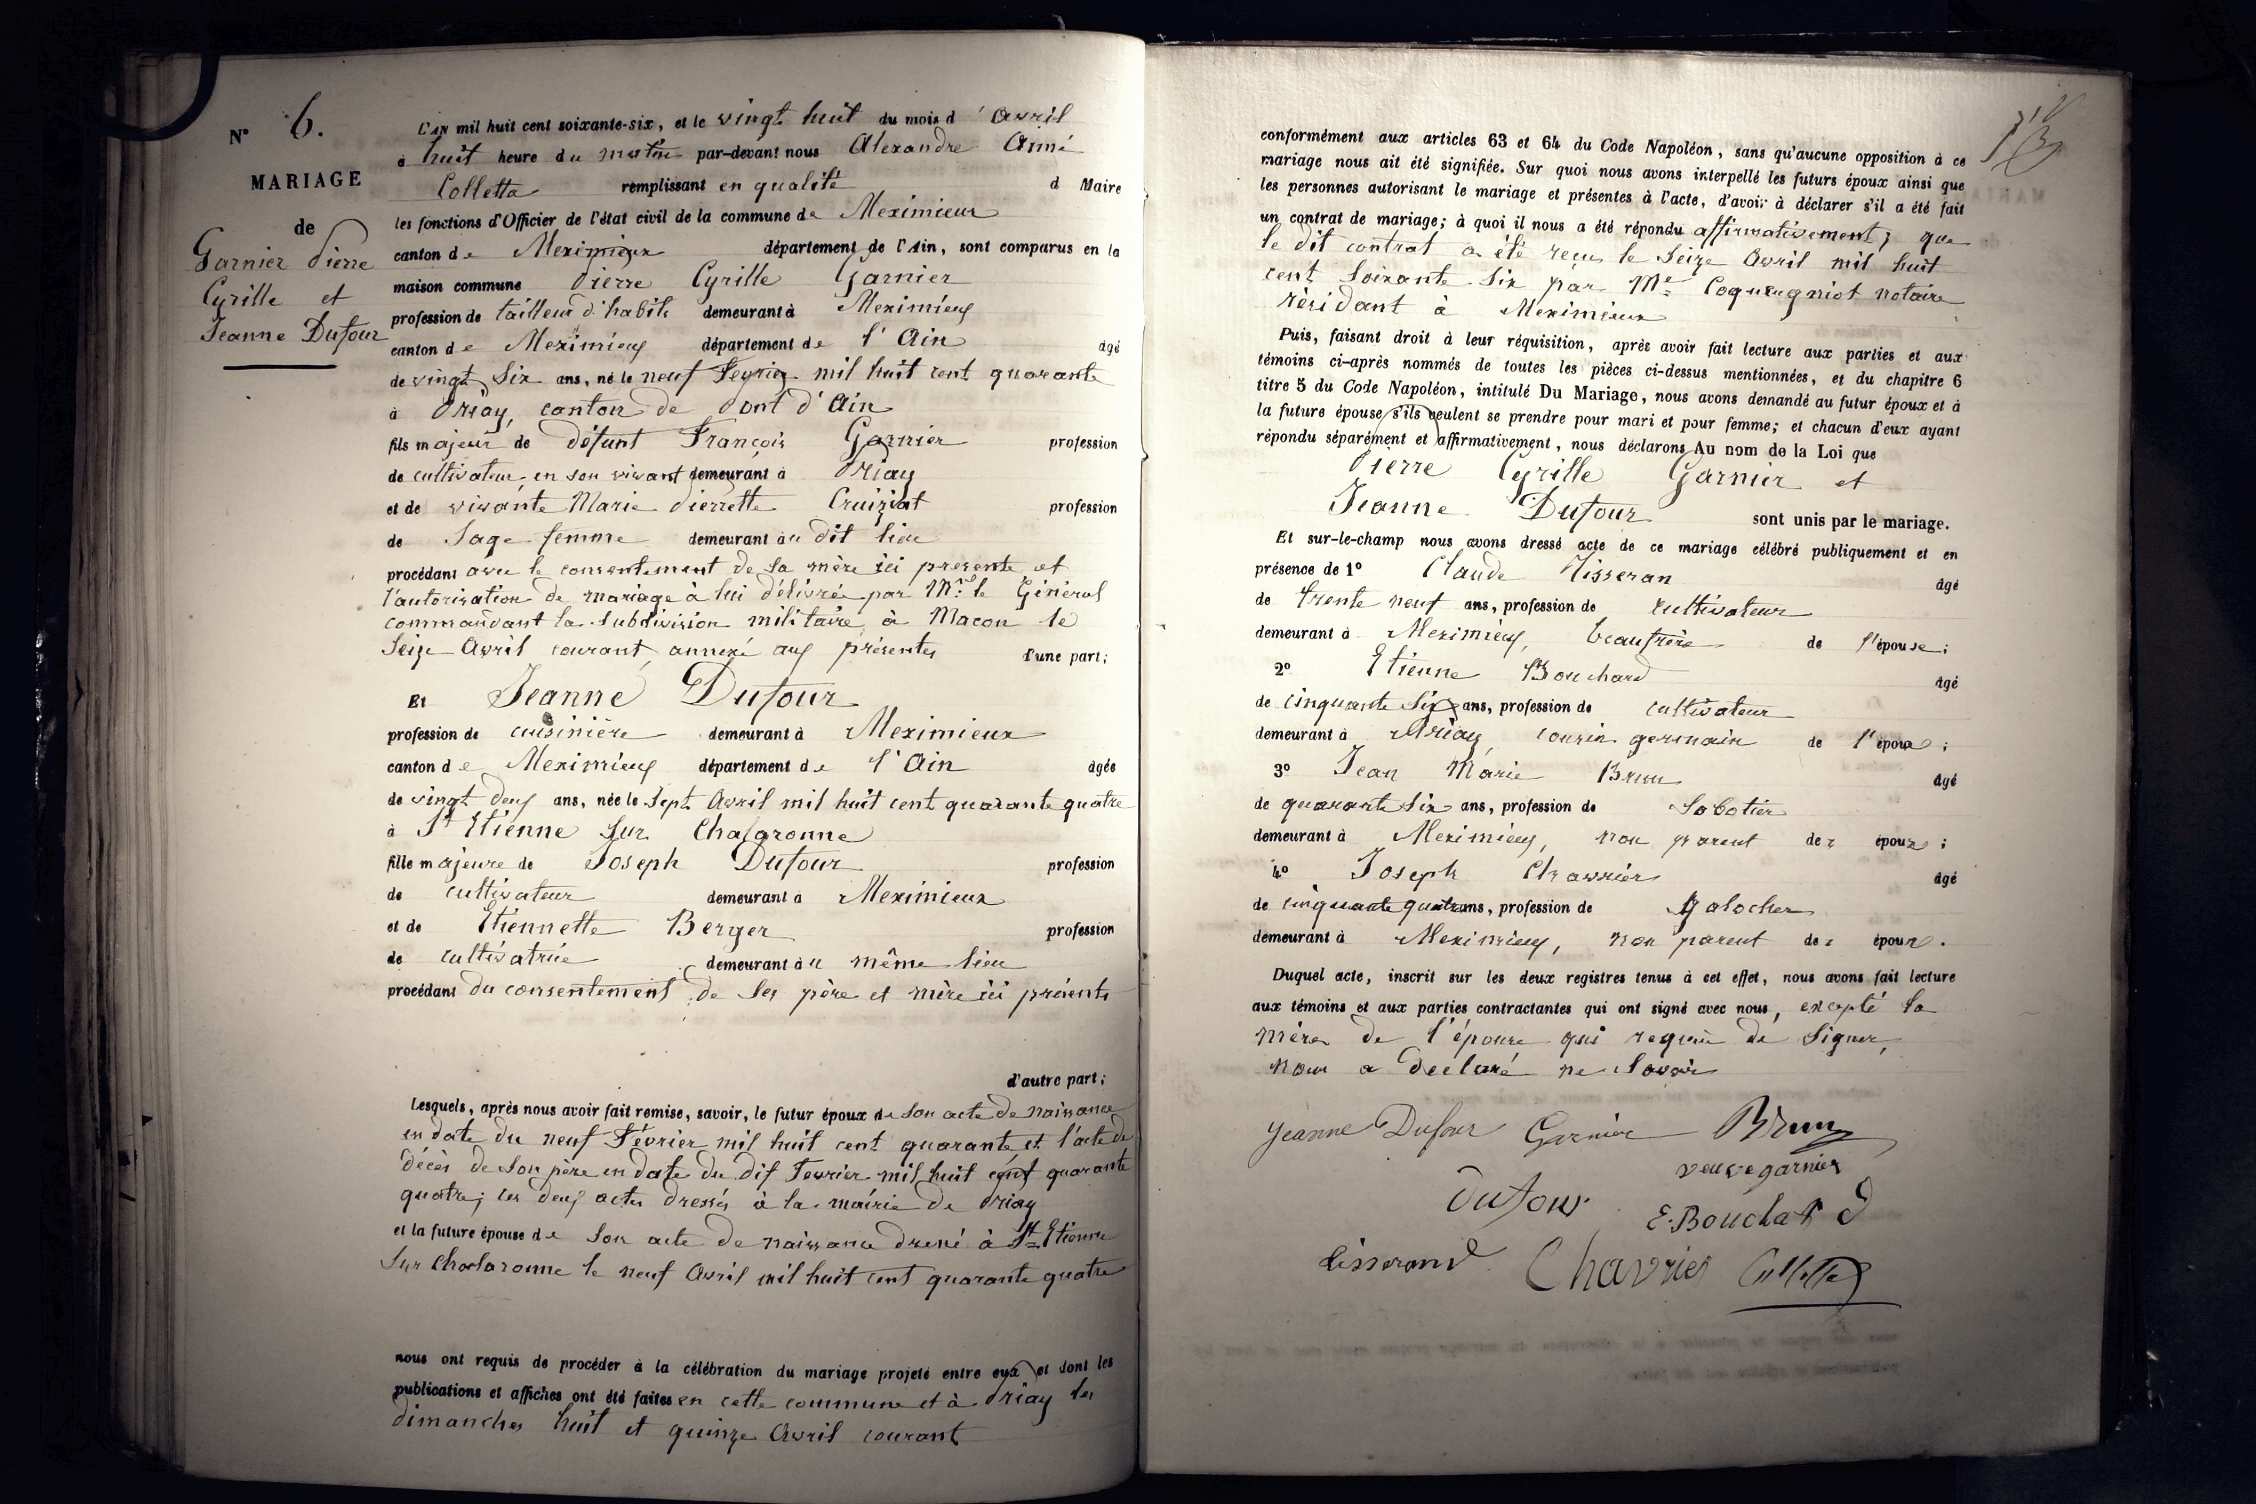 N° 6.
MARIAGE
de
Garnier Pierre
Cyrille et
Jeanne Dufour
L'AN mil huit cent soixante-six, et le vingt huit du mois d'Avril
à huit heure du matin par-devant nous Alexandre Aimé
Colletta remplissant en qualité d Maire
les fonctions d'Officier de l'état civil de la commune de Meximieux
canton de Meximieux département de l'Ain, sont comparus en la
maison commune Pierre Cyrille Garnier
profession de tailleur d'habits demeurant à Meximieux
canton de Meximieux département de l'Ain âgé
de vingt Six ans, né le neuf Fevrier mil huit cent quarante
à Priay, canton de Pont d'Ain
fils majeur de défunt François Garnier profession
de cultivateur, en son vivant demeurant à Priay
et de vivante Marie Pierrette Cruiziat profession
de Sage-femme demeurant au dit lieu
procédant avec le consentement de sa mère ici présente et
l'autorisation de mariage à lui délivrée par Mr. le Général
commandant la Subdivision militaire à Macon le
Seize Avril courant, annexé aux présentes d'une part;
Et Jeanne Dufour
profession de cuisinière demeurant à Meximieux
canton de Meximieux département de l'Ain âgée
de vingt deux ans, née le Sept Avril mil huit cent quarante quatre
à St Etienne Sur Chalaronne
fille majeure de Joseph Dufour profession
de cultivateur demeurant à Meximieux
et de Etiennette Berger profession
de cultivatrice demeurant au même lieu
procédant du consentement de Ses père et mère ici présents
d'autre part;
Lesquels, après nous avoir fait remise, savoir, le futur époux de Son acte de naissance
en date du neuf Février mil huit cent quarante et l'acte de
décès de Son père en date du dix Fevrier mil huit cent quarante
quatre; ces deux actes dressés à la mairie de Priay
et la future épouse de Son acte de naissance dressé à St Etienne
Sur Chalaronne le neuf Avril mil huit cent quarante quatre
nous ont requis de procéder à la célébration du mariage projeté entre eux et dont les
publications et affiches ont été faites en cette commune et à Priay les
dimanches huit et quinze Avril courant
conformément aux articles 63 et 64 du Code Napoléon, sans qu'aucune opposition à ce
mariage nous ait été signifiée. Sur quoi nous avons interpellé les futurs époux ainsi que
les personnes autorisant le mariage et présentes à l'acte, d'avoir à déclarer s'il a été fait
un contrat de mariage; à quoi il nous a été répondu affirmativement; que
le dit contrat a été reçu le Seize Avril mil huit
cent Soixante Six par Me Coqueugniot notaire
résidant à Meximieux
Puis, faisant droit à leur réquisition, après avoir fait lecture aux parties et aux
témoins ci-après nommés de toutes les pièces ci-dessus mentionnées, et du chapitre 6
titre 5 du Code Napoléon, intitulé Du Mariage, nous avons demandé au futur époux et à
la future épouse s'ils veulent se prendre pour mari et pour femme; et chacun d'eux ayant
répondu séparément et affirmativement, nous déclarons Au nom de la Loi que
Pierre Cyrille Garnier et
Jeanne Dufour sont unis par le mariage.
Et sur-le-champ nous avons dressé acte de ce mariage célébré publiquement et en
présence de 1° Claude Tisseran âgé
de trente neuf ans, profession de cultivateur
demeurant à Meximieux, beaufrère de l'épouse;
2° Etienne Bouchard âgé
de cinquante Six ans, profession de cultivateur
demeurant à Priay, cousin germain de l'époux;
3° Jean Marie Brun âgé
de quarante Six ans, profession de Sabotier
demeurant à Meximieux, non parent des époux;
4° Joseph Chavrier âgé
de cinquante quatre ans, profession de Galocher
demeurant à Meximieux, non parent des époux.
Duquel acte, inscrit sur les deux registres tenus à cet effet, nous avons fait lecture
aux témoins et aux parties contractantes qui ont signé avec nous, excepté la
mère de l'épouse qui requise de Signer,
nous a déclaré ne Savoir
Jeanne Dufour Garnier Brun
veuve garnier
Dufour E. Bouchard
tisserand Chavrier Colletta